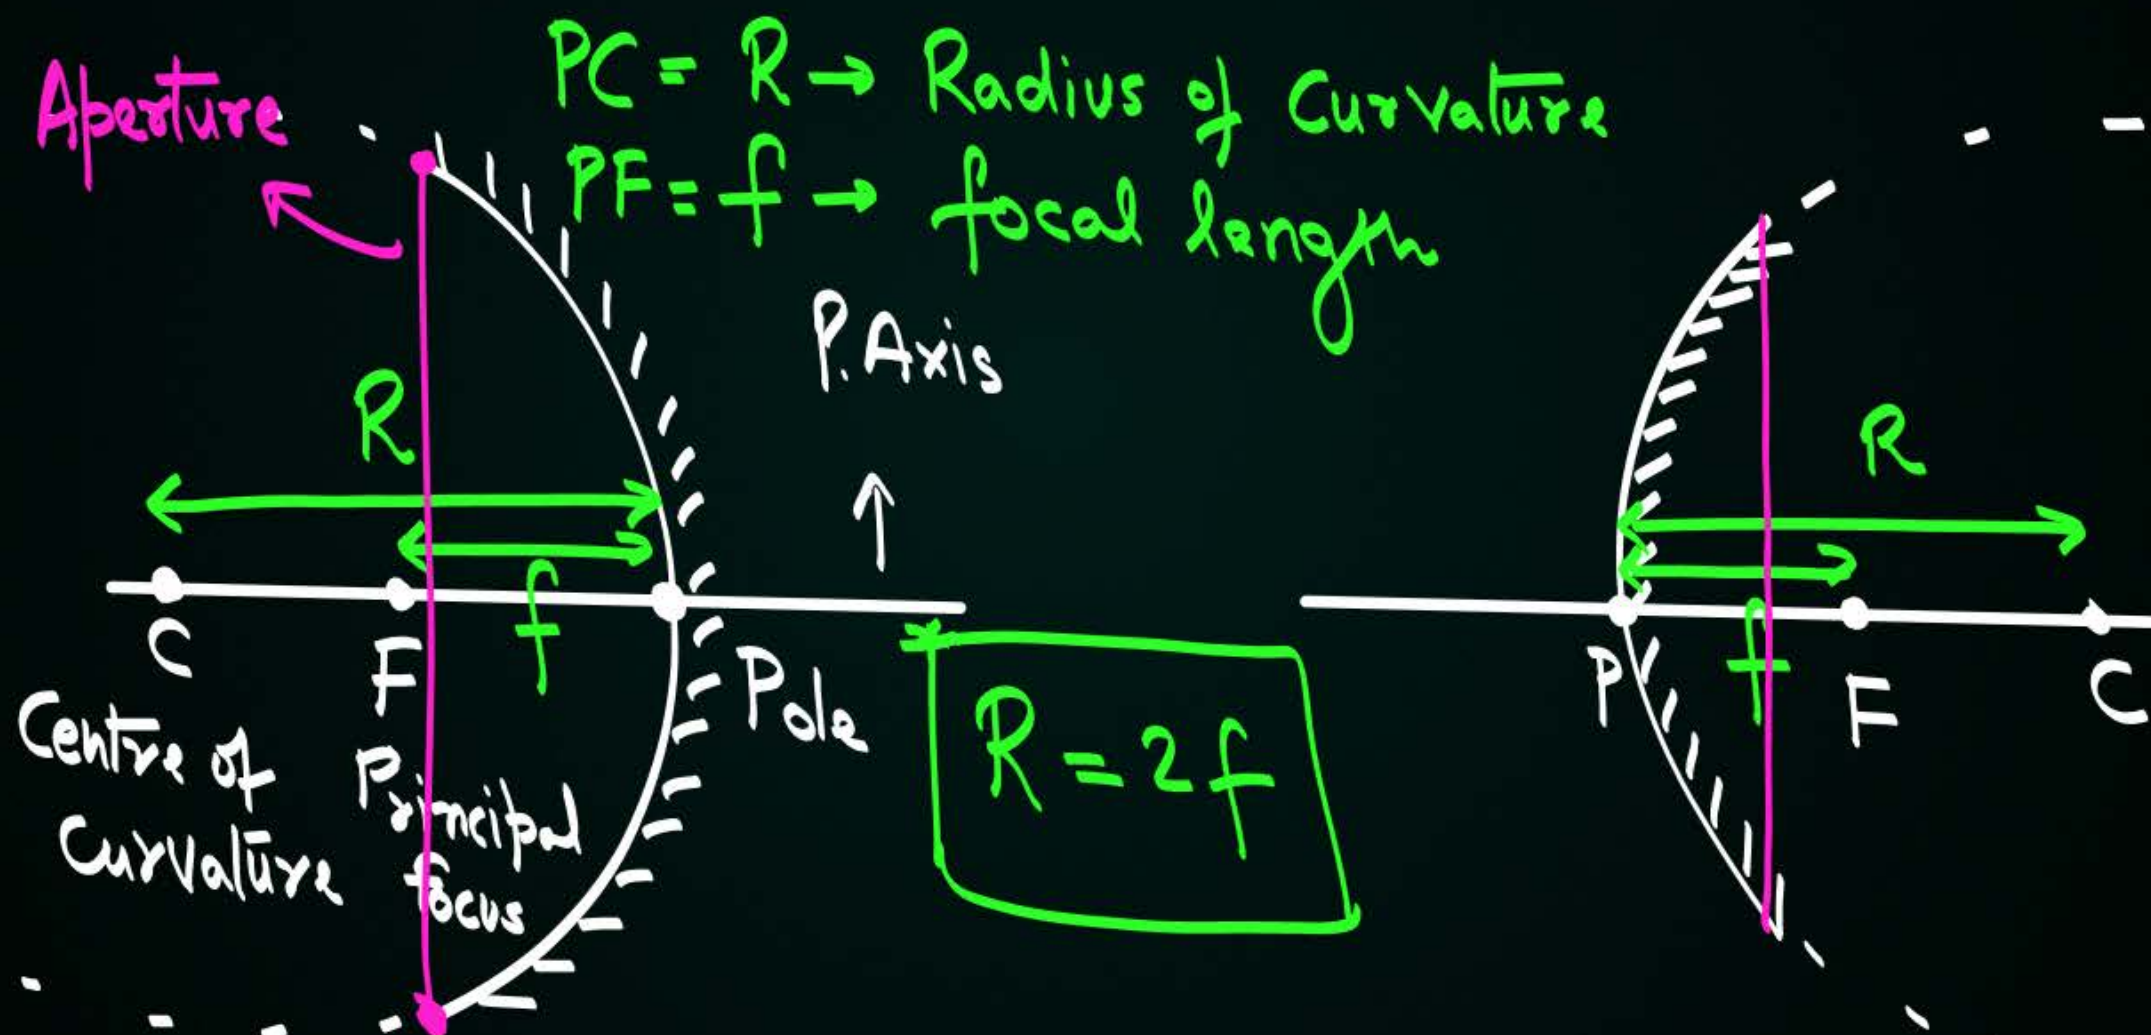 Aperture
PC = R → Radius of Curvature
PF = f → focal length
P. Axis
R
f
C
F
Pole
Centre of
Curvature
Principal
focus
R = 2f
R
f
P
F
C